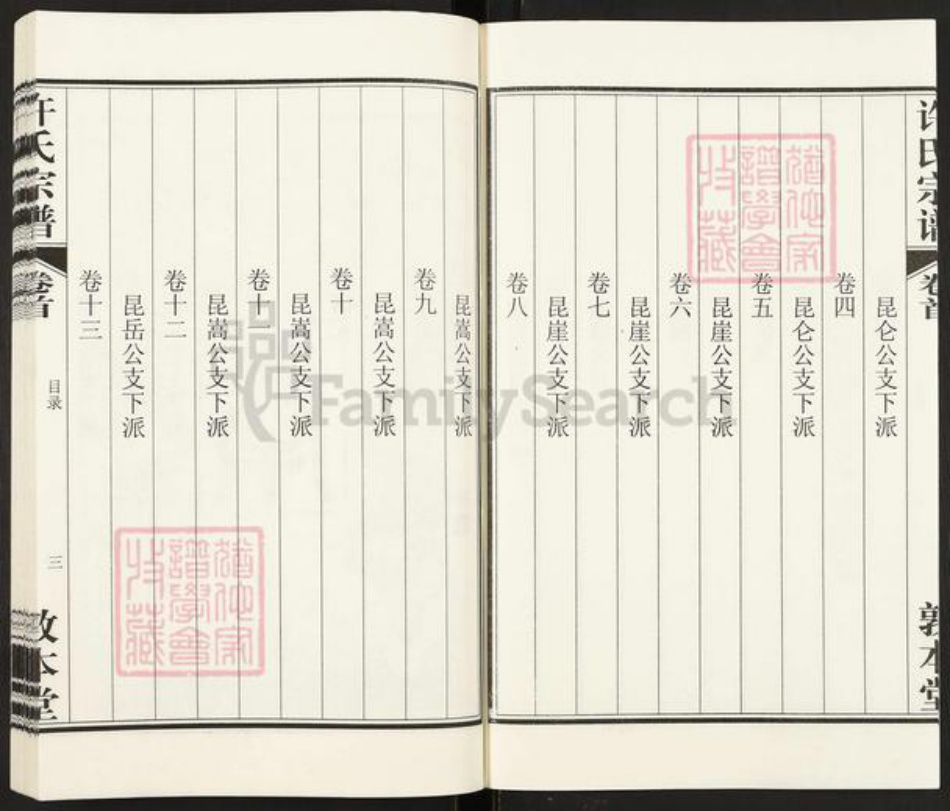 许氏宗谱
卷首
敦本堂
昆仑公支下派
卷四
昆仑公支下派
卷五
昆崖公支下派
卷六
昆崖公支下派
卷七
昆崖公支下派
卷八
昆嵩公支下派
卷九
昆嵩公支下派
卷十
昆嵩公支下派
卷十一
昆嵩公支下派
卷十二
昆岳公支下派
卷十三
许氏宗谱
卷首
目录
三
敦本堂
FamilySearch